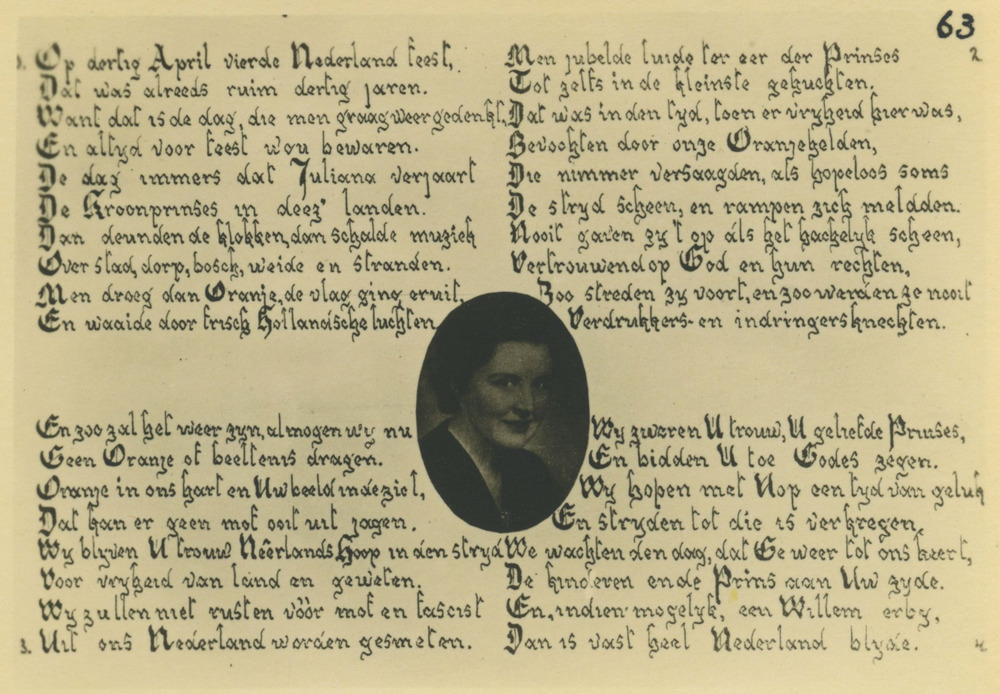 63
1. Op dertig April vierde Nederland feest,
Dat was alreeds ruim dertig jaren.
Want dat is de dag, die men graag weer gedenkt,
En altyd voor feest wou bewaren.
De dag immers dat Juliana verjaart
De Kroonprinses in deez' landen.
Dan deunden de klokken, dan schalde muziek
Over stad, dorp, bosch, weide en stranden.
Men droeg dan Oranje, de vlag ging eruit,
En waaide door frisch Hollandsche luchten.
2
Men jubelde luide ter eer der Prinses
Tot zelfs in de kleinste gehuchten.
Dat was in den tyd, toen er vryheid hier was,
Bevochten door onze Oranjehelden,
Die nimmer versaagden, als hopeloos soms
De stryd scheen, en rampen zich meldden.
Nooit gaven zy 't op als het hachelyk scheen,
Vertrouwend op God en hun rechten,
Zoo streden zy voort, en zoo werden ze nooit
Verdrukkers- en indringersknechten.
En zoo zal het weer zyn, al mogen wy nu
Geen Oranje of beeltenis dragen.
Oranje in ons hart en Uw beeld in de ziel,
Dat kan er geen mof ooit uit jagen.
Wy blyven U trouw Neêrlands Hoop in den stryd
Voor vryheid van land en geweten.
Wy zullen niet rusten vóór mof en fascist
3. Uit ons Nederland worden gesmeten.
Wy zweren U trouw, U geliefde Prinses,
En bidden U toe Godes zegen.
Wy hopen met U op een tyd van geluk
En stryden tot die is verkregen.
We wachten den dag, dat Ge weer tot ons keert,
De kinderen en de Prins aan Uw zyde.
En, indien mogelyk, een Willem erby,
Dan is vast heel Nederland blyde. 4